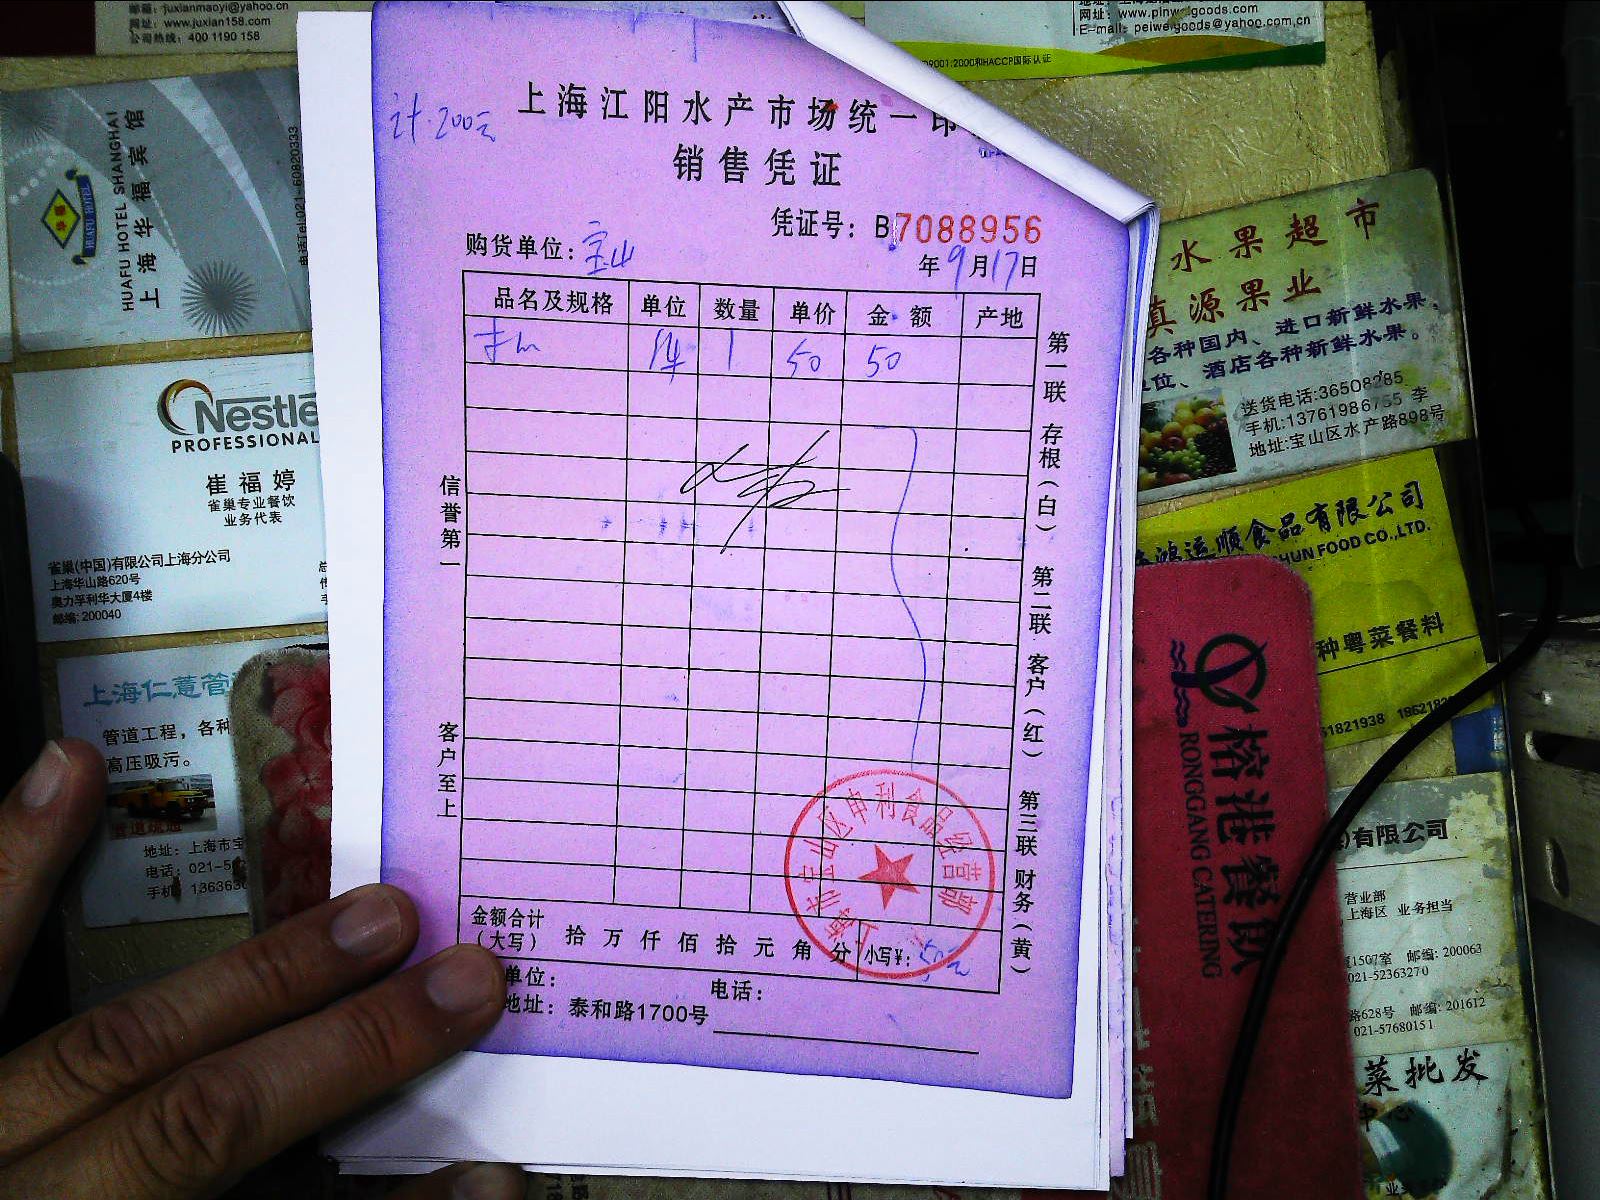 邮箱: juxianmaoyi@yahoo.cn
网址: www.juxian158.com
公司热线: 400 1190 158
网址: www.pinweigoods.com
E-mail: peiweigoods@yahoo.com.cn
9001:2000和HACCP国际认证
上海华福宾馆
HUAFU HOTEL SHANGHAI
HUAFU HOTEL
电话Tel:021-60820333
Nestlé
PROFESSIONAL
崔福婷
雀巢专业餐饮
业务代表
雀巢(中国)有限公司上海分公司
上海华山路620号
奥力孚利华大厦4楼
邮编: 200040
上海仁薏管
管道工程，各种
高压吸污。
管道疏通
地址: 上海市宝
电话: 021-56
手机 136363
计.200元
上海江阳水产市场统一印
销售凭证
凭证号: B7088956
购货单位: 宝山
年9月17日
品名及规格 单位 数量 单价 金额 产地
1 50 50
信誉第一
客户至上
第一联 存根(白) 第二联 客户(红) 第三联 财务(黄)
上海市宝山区申利食品经营部
金额合计
(大写) 拾 万 仟 佰 拾 元 角 分 小写¥: 50元
单位: 电话:
地址: 泰和路1700号
水果超市
真源果业
各种国内、进口新鲜水果，
位、酒店各种新鲜水果。
送货电话:36508285
手机:13761986755 李
地址:宝山区水产路898号
鸿运顺食品有限公司
SHUN FOOD CO.,LTD.
种粤菜餐料
61821938 1862182
榕港餐饮
RONGGANG CATERING
有限公司
营业部
上海区 业务担当
1507室 邮编: 200063
021-52363270
路628号 邮编: 201612
021-57680151
菜批发
中心